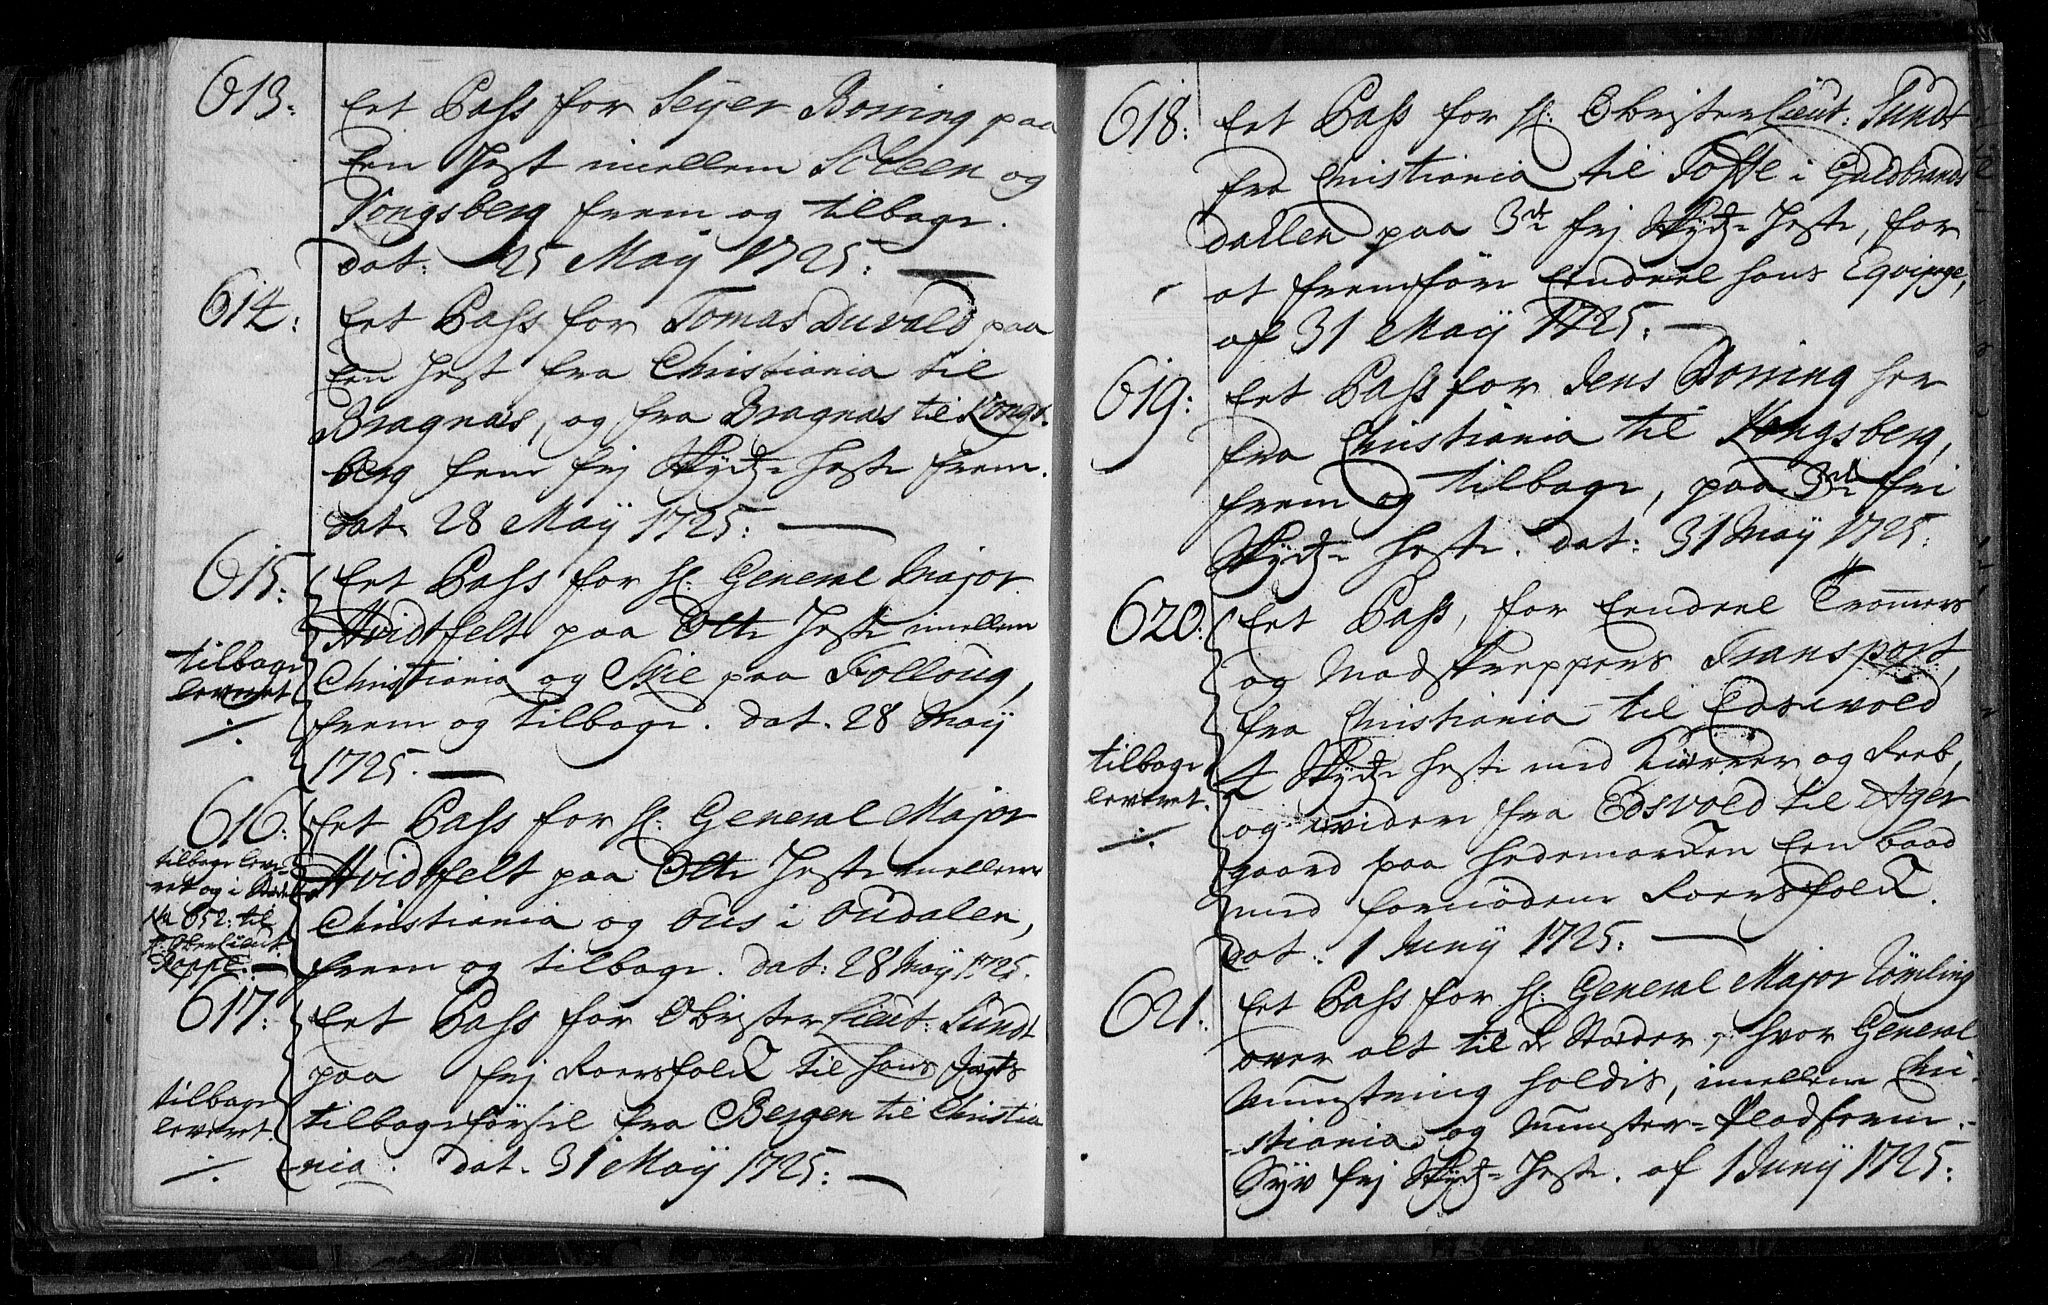 613:
Eet Pass for Seyer Borring paa
Een Hest imellem Scheen og
Kongsberg frem og tilbage.
Dat: 25 Maÿ 1725:
614:
Eet Pass for Tomas Duvald paa
Een Hest fra Christiania til
Bragnæs, og fra Bragnæs til Kongs-
berg fem frj Skydz Heste frem.
dat 28 Maÿ 1725:
615:
Eet Pass for H: General Major
Hvidtfelt paa Otte Heste imellem
Christiania og Skie paa Folloug,
frem og tilbage. dat. 28 Maÿ
1725.
tilbage
leveret
616:
Eet Pass for H: General Major
Hvidtfelt paa Otte Heste imellem
Christiania og Ous i Oudalen,
frem og tilbage. dat: 28 Maÿ 1725.
tilbage leve-
ret og i
No 652: til
H. Ober Lieut.
617:
Eet Pass for Obrister Lieut: Sundt
paa frj Roersfolck til hans Jagts
tilbageførsel fra Bergen til Christia
nia. dat. 31 Maÿ 1725:
tilbage
leveret
618:
Eet Pass for H: Obrister Lieut: Sundt
fra Christiania til Tofte i Guldbrands
dallen paa 3de frj Skydz Heste, for
at fremføre Eendeel hans Eqvipage,
af 31 Maÿ 1725:
619:
Eet Pass for Jens Borring her
fra Christiania til Kongsberg,
frem og tilbage, paa 3de fri
Skydz Heste. dat: 31 Maÿ 1725:
620:
Eet Pass, for Eendeel Trommers
og Madskreppers Transport,
fra Christiania til Edsevold
4 Skydz Heste med Kurrer og Reeb,
og vider fra Edsvold til Ager
gaard paa Hedemarcken Een baad
med fornøden Roersfolck.
Dat: 1 Junÿ 1725:
tilbage
leveret.
621:
Eet Pass for H: General Major Tømling
over alt til de Stæder, hvor General
Munstring holdis, imellem Chri-
-stiania og Munster-Pladserne.
Syv frj Skydz-Heste. af 1 Junÿ 1725: